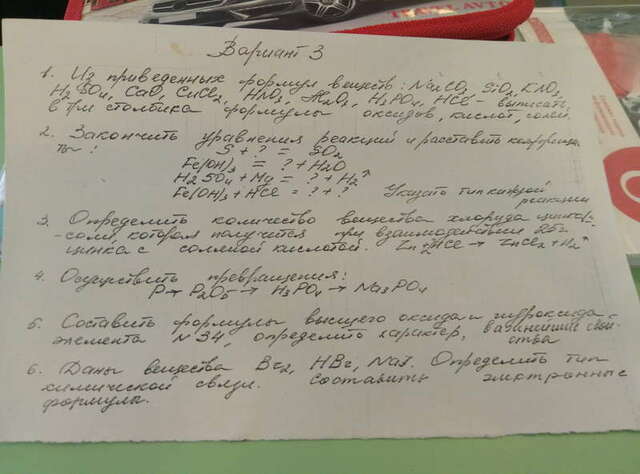 Вариант 3
1. Из приведенных формул веществ: Na2CO3, SiO2, KNO3,
H2SO4, CaO, CuCl2, HNO3, Al2O3, H3PO4, HCl - выписать
в три столбика формулы оксидов, кислот, солей.
2. Закончить уравнения реакций и расставить коэффициен-
ты:
S + ? = SO2
Fe(OH)3 = ? + H2O
H2SO4 + Mg = ? + H2↑
Fe(OH)3 + HCl = ? + ? Указать тип каждой
реакции
3. Определить количество вещества хлорида цинка(-
-соли, которая получится при взаимодействии 25г.
цинка с соляной кислотой. Zn + 2HCl → ZnCl2 + H2↑
4. Осуществить превращения:
P → P2O5 → H3PO4 → Na3PO4
5. Составить формулы высшего оксида и гидроксида
элемента №34, определить характер, важнейшие свой-
ства
6. Даны вещества Br2, HBr, NaI. Определить тип
химической связи. Составить электронные
формулы.